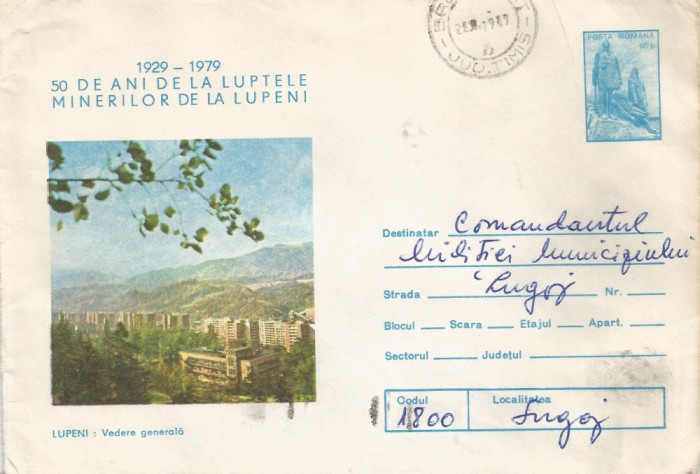 1929 - 1979
50 DE ANI DE LA LUPTELE
MINERILOR DE LA LUPENI
JUD. TIMIS
POSTA ROMANA
Destinatar Comandantul
Miliției Municipiului
Strada Lugoj Nr.
Blocul Scara Etajul Apart.
Sectorul Județul
Codul Localitatea
1800 Lugoj
LUPENI : Vedere generală